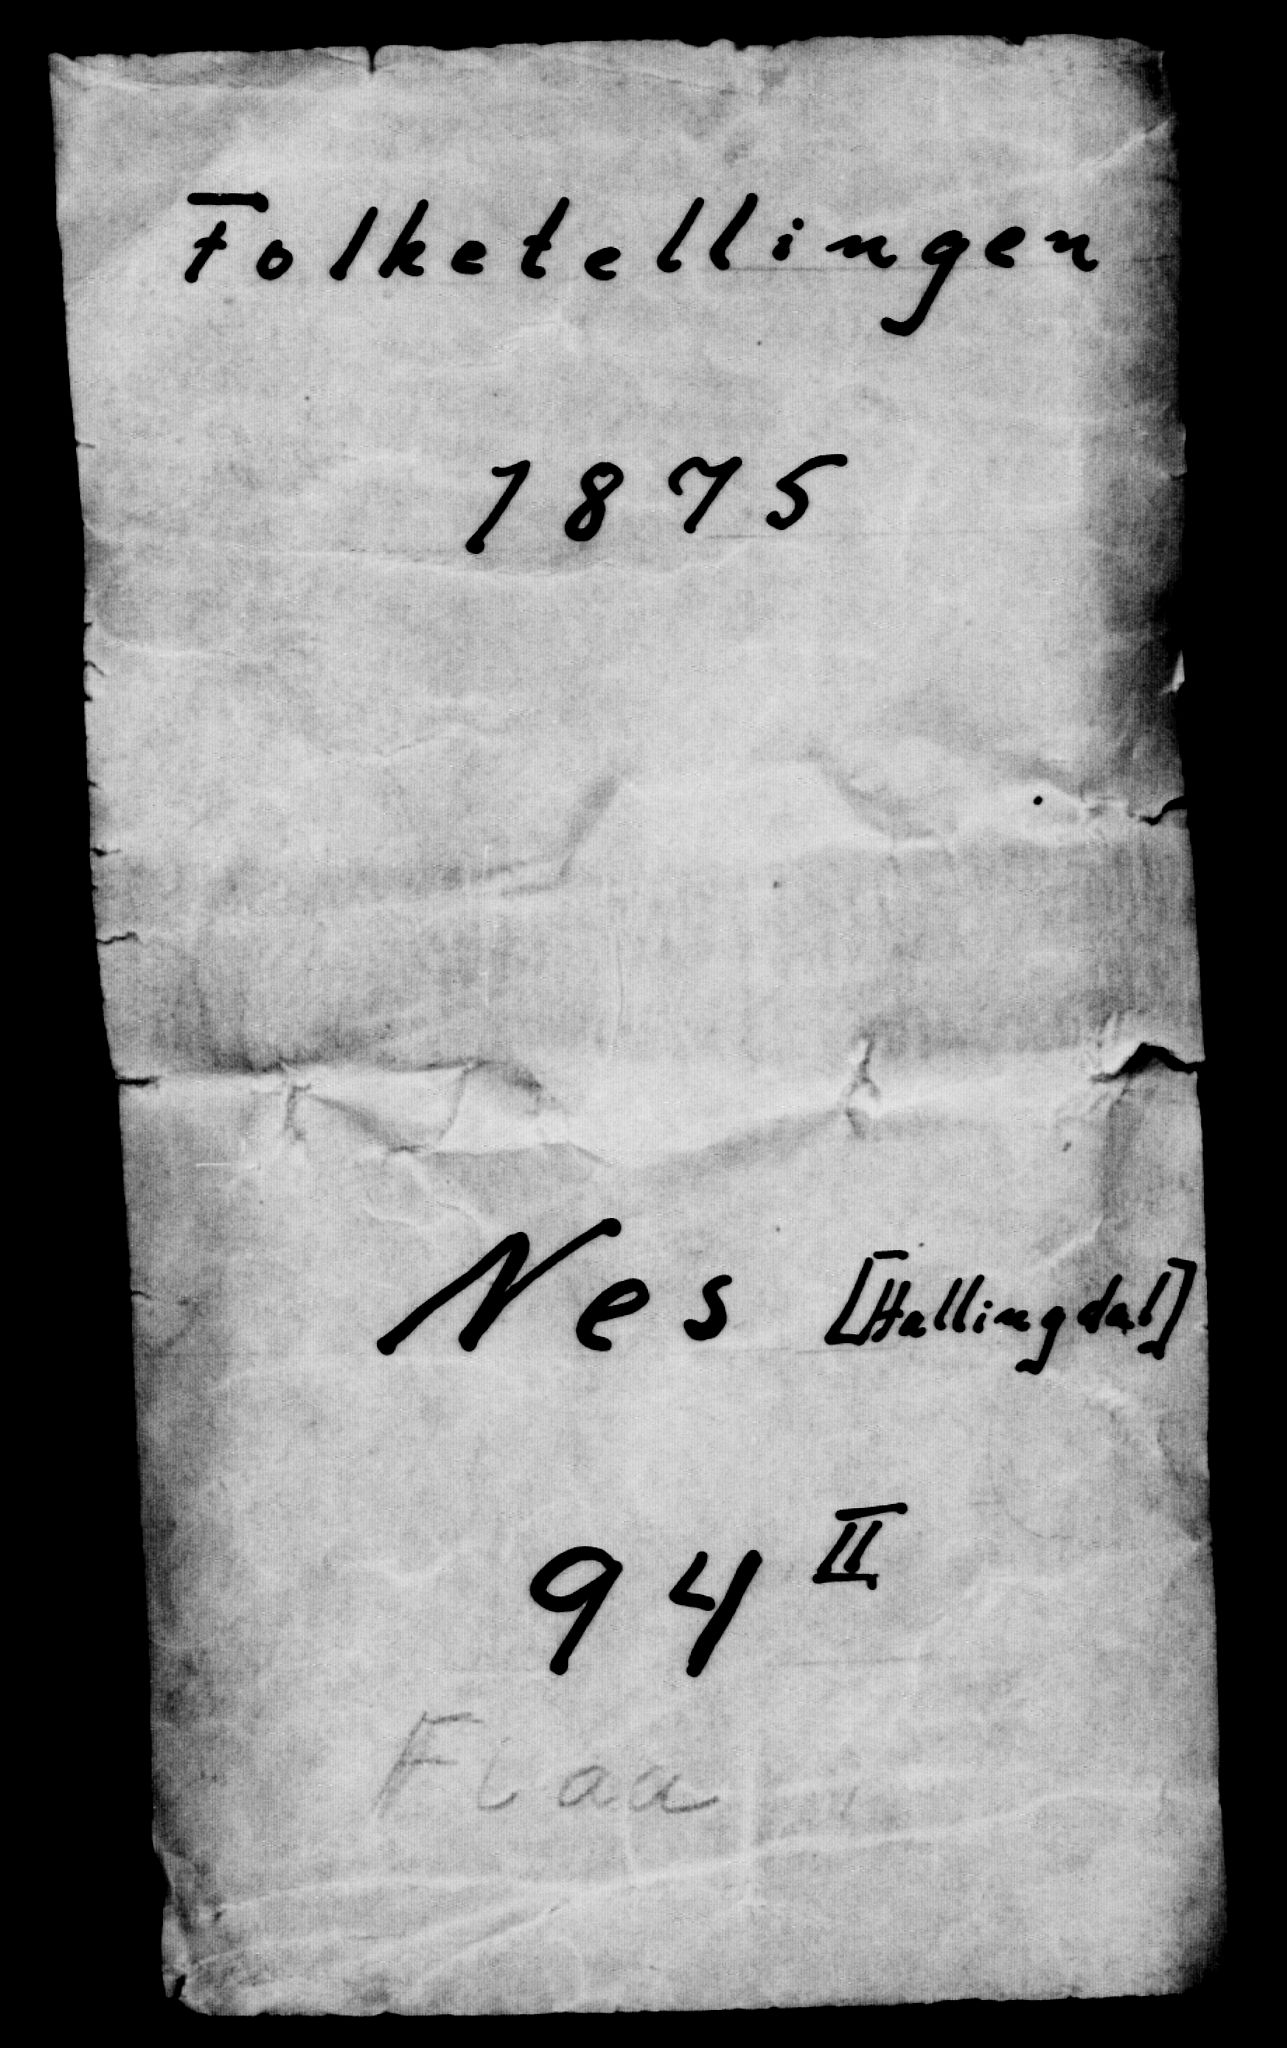 Folketellingen
1875
Nes [Hallingdal]
94 II
Flaa